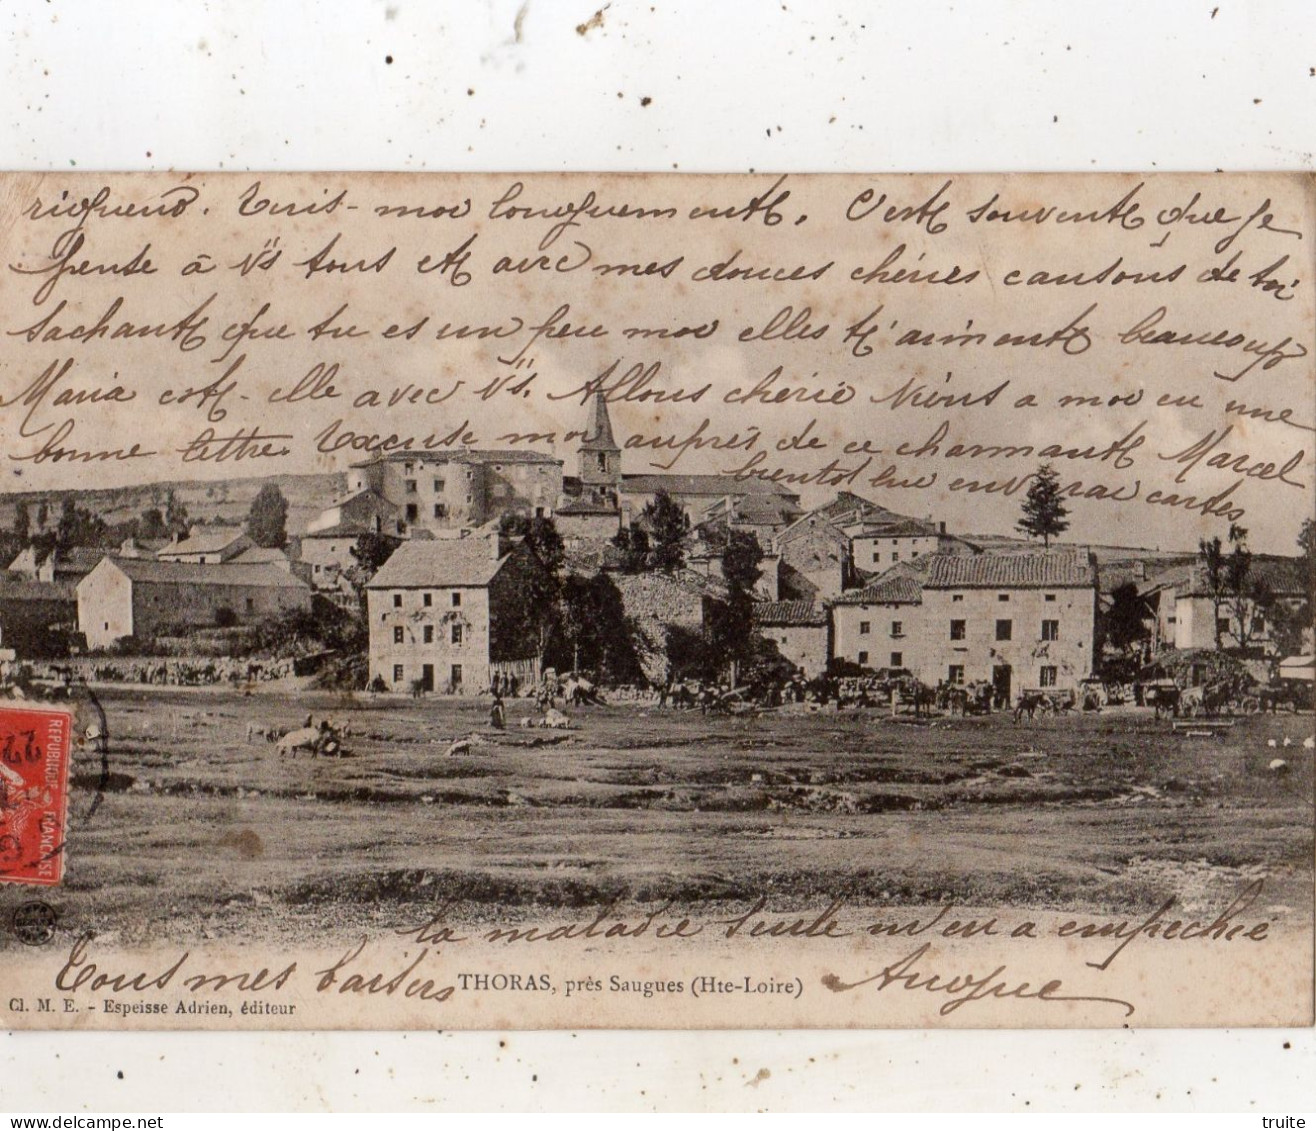 rigueur. Ecris-moi longuement. C'est souvent que je
pense à Vs tous et avec mes douces chéries causons de toi
sachant que tu es un peu moi elles t'aiment beaucoup
Maria est-elle avec Vs. Allons chérie viens a moi en une
bonne lettre. Excuse moi auprès de ce charmant Marcel
bientot lui enverrai cartes
la maladie seule m'en a empechée
Tous mes baisers
THORAS, près Saugues (Hte-Loire)
Cl. M. E. - Espeisse Adrien, éditeur
REPUBLIQUE FRANÇAISE
22
truite